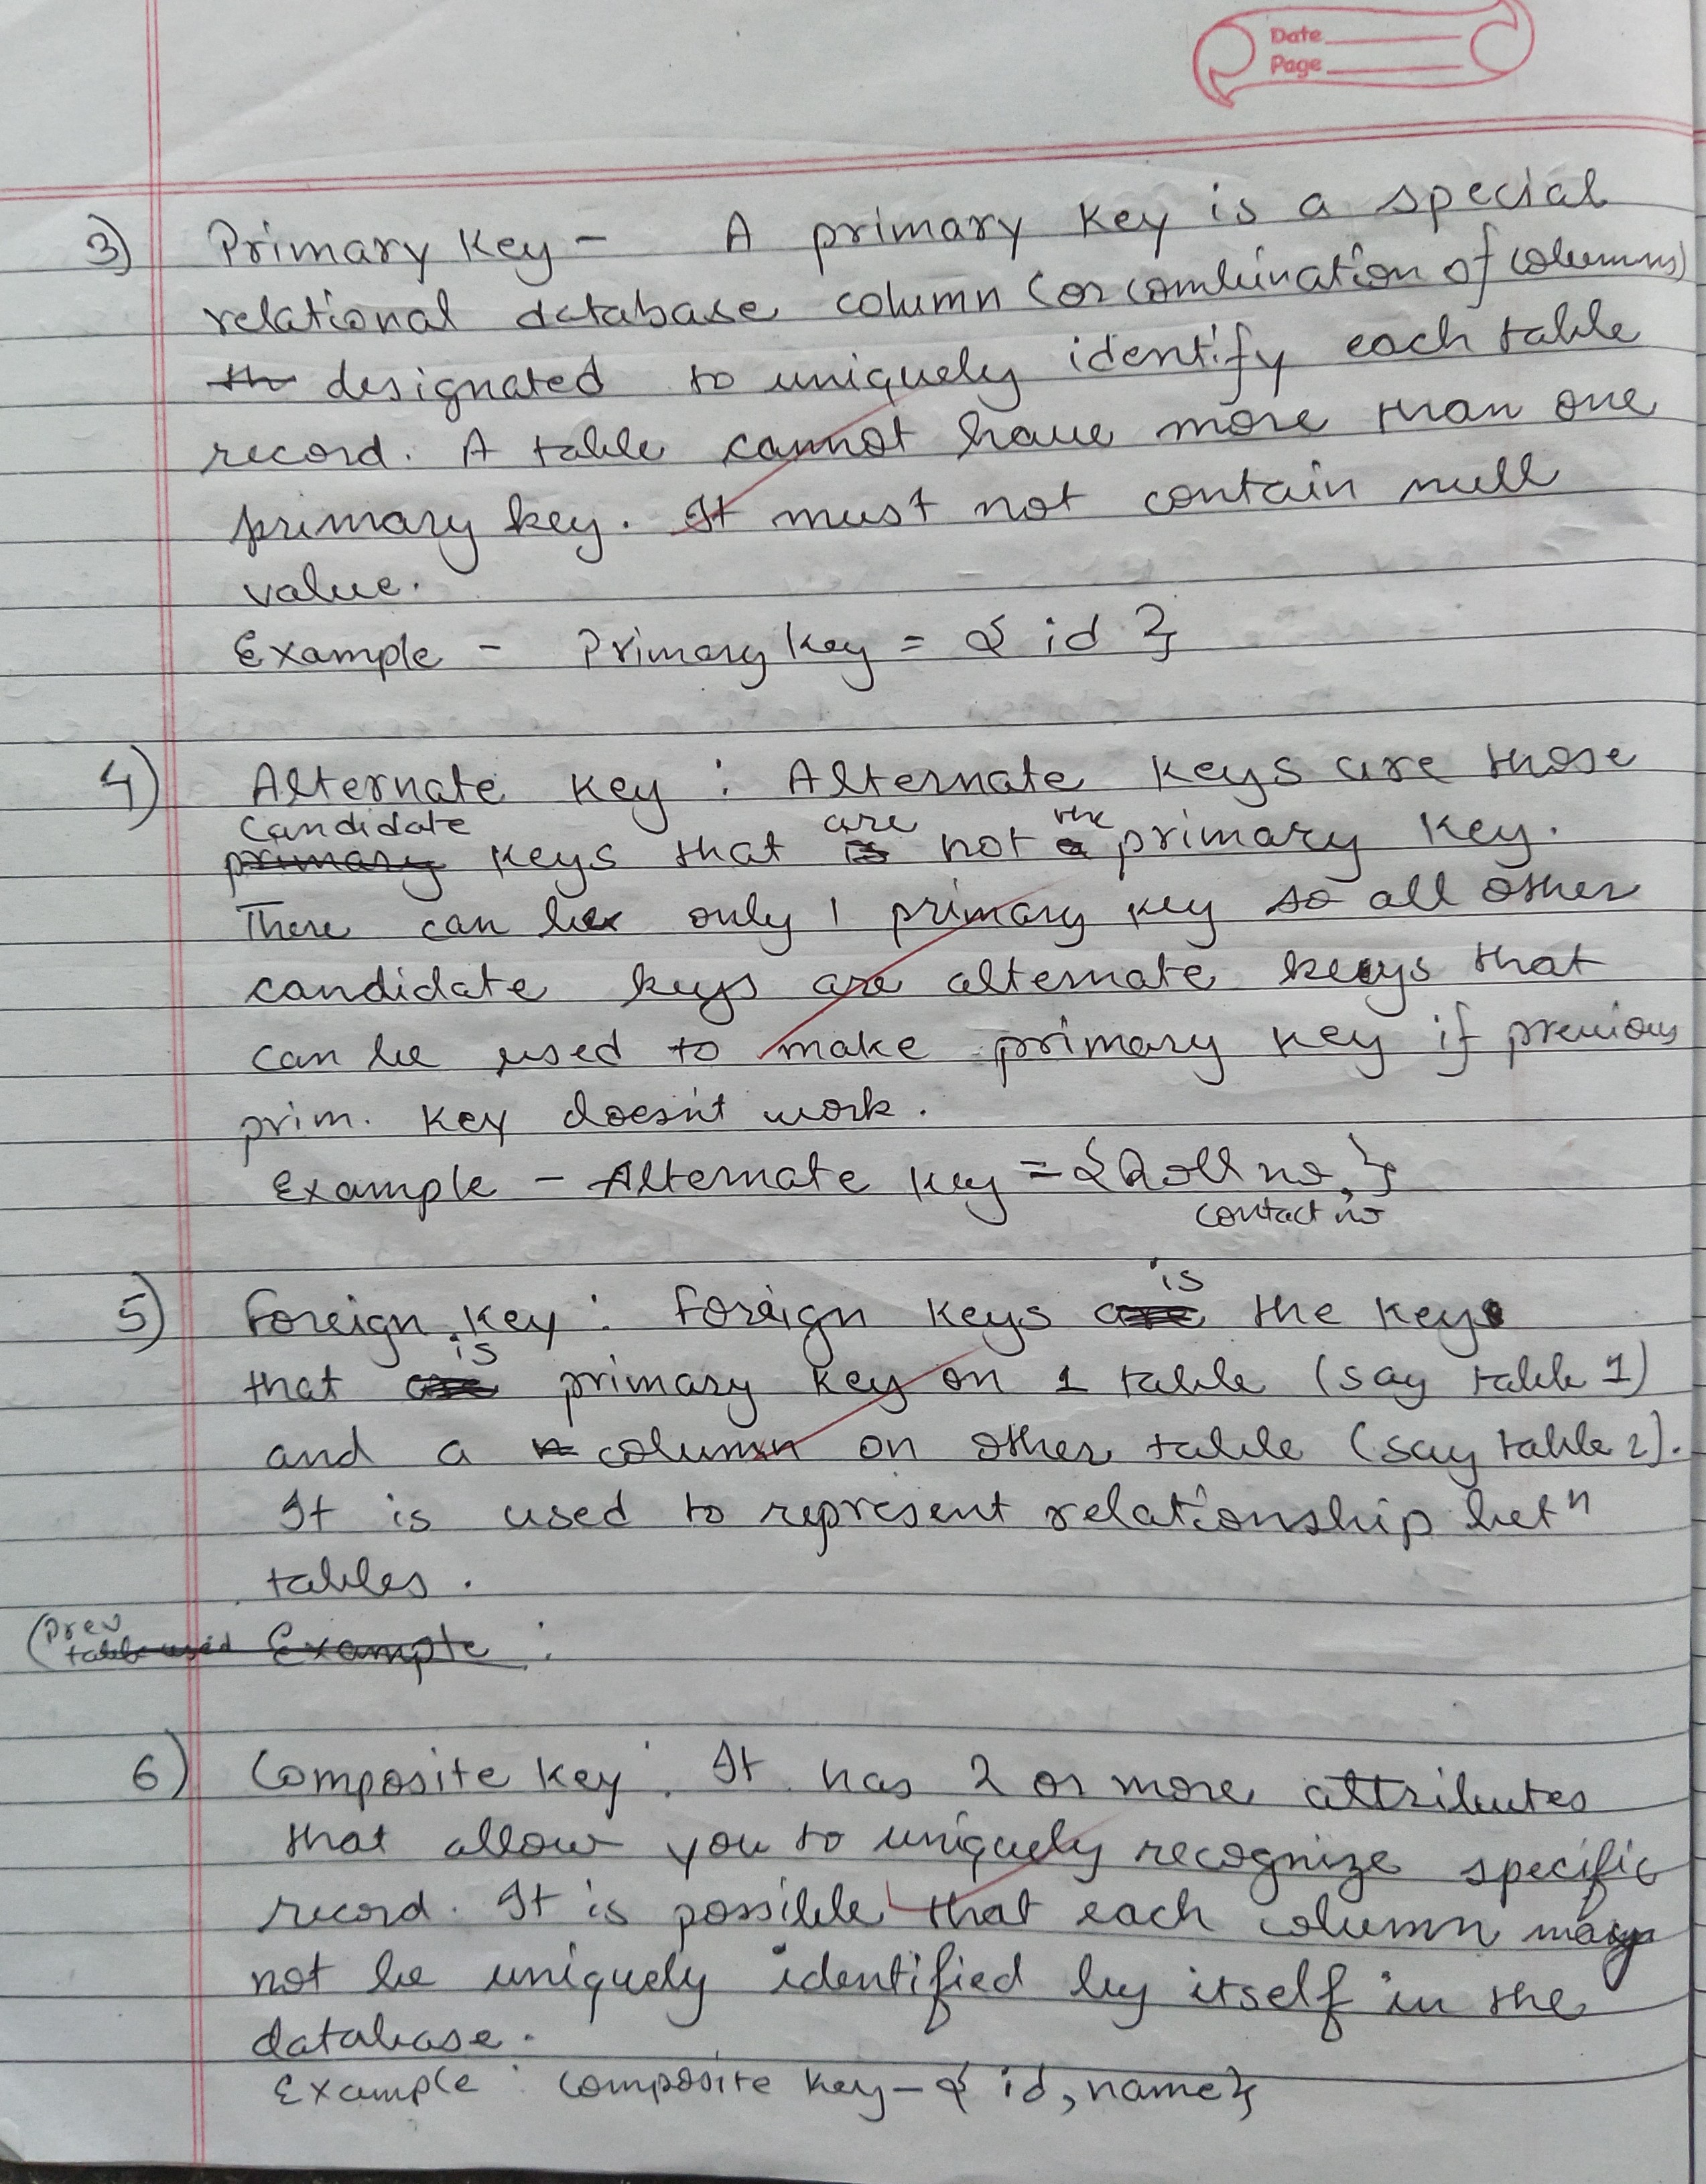 Date
Page
3) Primary Key - A primary key is a special
relational database column (or combination of columns)
th designated to uniquely identify each table
record. A table cannot have more than one
primary key. It must not contain null
value.
Example - Primary key = { id }
4) Alternate key : Alternate keys are those
candidate are the
primary keys that is not a primary key.
There can be only 1 primary key so all other
candidate keys are alternate keys that
can be used to make primary key if previous
prim. key doesn't work.
Example - Alternate key = {Roll no, }
contact no
is
5) Foreign key : Foreign keys are the key
is
that are primary key on 1 table (say table 1)
and a column on other table (say table 2).
It is used to represent relationship betⁿ
tables.
(Prev
table used Example :
6) Composite key : It has 2 or more attributes
that allow you to uniquely recognize specific
record. It is possible that each column may
not be uniquely identified by itself in the
database.
Example : composite key - { id, name}